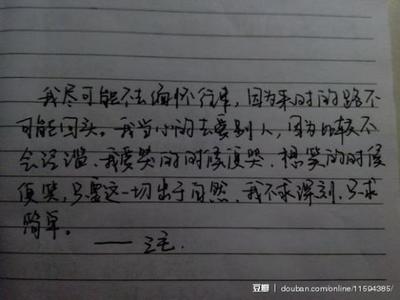 我尽可能不去缅怀往事，因为来时的路不
可能回头。我当心的去爱别人，因为比较不
会泛滥、我爱哭的时候便哭，想笑的时候
便笑，只要这一切出于自然、我不求深刻、只求
简单。
—— 三毛.
豆瓣 douban.com/online/11594385/